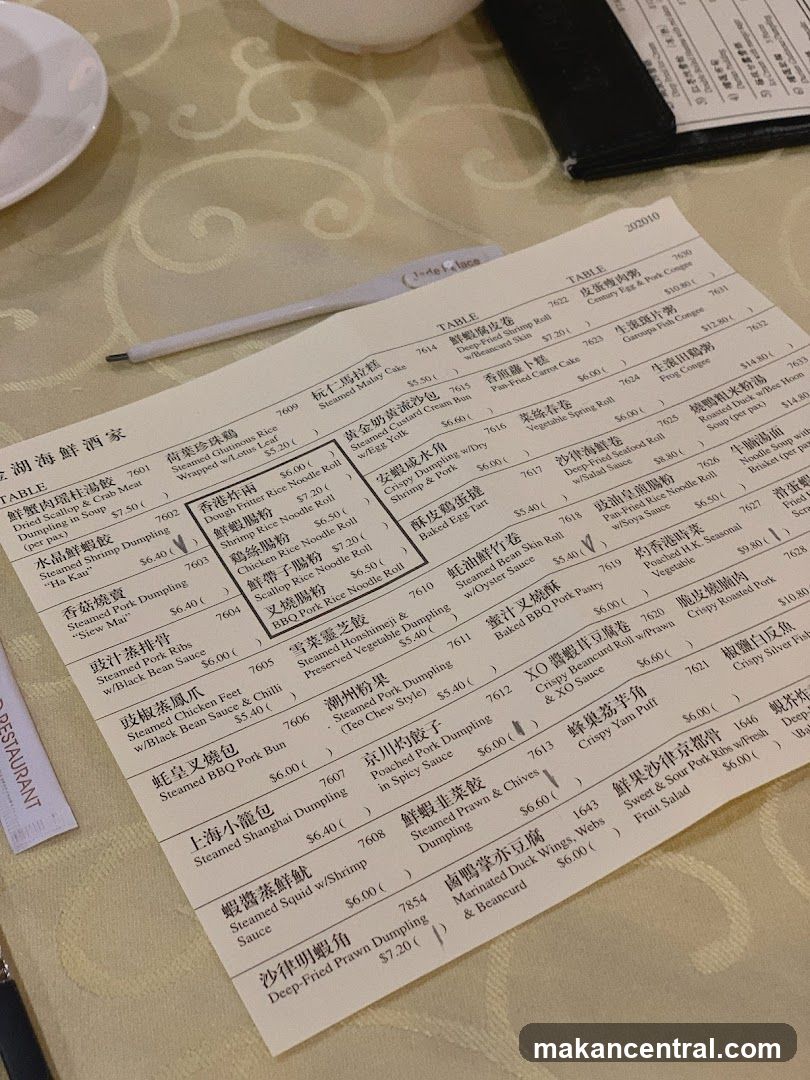 202010
Jade Palace
湖海鮮酒家
TABLE
TABLE
TABLE
鮮蟹肉瑶柱湯餃 7601
Dried Scallop & Crab Meat
Dumpling in Soup
(per pax) $7.50 ( )
水晶鮮蝦餃 7602
Steamed Shrimp Dumpling
"Ha Kau" $6.40 ( )
香菇燒賣 7603
Steamed Pork Dumpling
"Siew Mai" $6.40 ( )
豉汁蒸排骨 7604
Steamed Pork Ribs
w/Black Bean Sauce $6.00 ( )
豉椒蒸鳳爪 7605
Steamed Chicken Feet
w/Black Bean Sauce & Chilli
$5.40 ( )
蚝皇叉燒包 7606
Steamed BBQ Pork Bun
$6.00 ( )
上海小籠包 7607
Steamed Shanghai Dumpling
$6.40 ( )
蝦醬蒸鮮魷 7608
Steamed Squid w/Shrimp
Sauce $6.00 ( )
沙律明蝦角 7854
Deep-Fried Prawn Dumpling
$7.20 ( )
荷葉珍珠鷄 7609
Steamed Glutinous Rice
Wrapped w/Lotus Leaf
$5.20 ( )
香港炸兩 $6.00 ( )
Dough Fritter Rice Noodle Roll
鮮蝦腸粉 $7.20 ( )
Shrimp Rice Noodle Roll
鷄絲腸粉 $6.50 ( )
Chicken Rice Noodle Roll
鮮帶子腸粉 $7.20 ( )
Scallop Rice Noodle Roll
叉燒腸粉 $6.50 ( )
BBQ Pork Rice Noodle Roll
雪菜靈芝餃 7610
Steamed Honshimeji &
Preserved Vegetable Dumpling
$5.40 ( )
潮州粉果 7611
Steamed Pork Dumpling
(Teo Chew Style) $5.40 ( )
京川灼餃子 7612
Poached Pork Dumpling
in Spicy Sauce $6.00 ( )
鮮蝦韭菜餃 7613
Steamed Prawn & Chives
Dumpling $6.60 ( )
鹵鴨掌亦豆腐 1643
Marinated Duck Wings, Webs
& Beancurd $6.00 ( )
杬仁馬拉糕 7614
Steamed Malay Cake
$5.50 ( )
黃金奶黃流沙包 7615
Steamed Custard Cream Bun
w/Egg Yolk $6.60 ( )
安蝦咸水角 7616
Crispy Dumpling w/Dry
Shrimp & Pork $6.00 ( )
酥皮鷄蛋撻 7617
Baked Egg Tart $5.40 ( )
蚝油鮮竹卷 7618
Steamed Bean Skin Roll
w/Oyster Sauce $5.40 ( )
蜜汁叉燒酥 7619
Baked BBQ Pork Pastry
$6.00 ( )
XO 醬蝦茸豆腐卷 7620
Crispy Beancurd Roll w/Prawn
& XO Sauce $6.60 ( )
蜂巢荔芋角 7621
Crispy Yam Puff
$6.00 ( )
鮮果沙律京都骨 1646
Sweet & Sour Pork Ribs w/Fresh
Fruit Salad $6.00 ( )
鮮蝦腐皮卷 7622
Deep-Fried Shrimp Roll
w/Beancurd Skin $7.20 ( )
香煎蘿卜糕 7623
Pan-Fried Carrot Cake
$6.00 ( )
菜絲春卷 7624
Vegetable Spring Roll
$6.00 ( )
沙律海蟹卷 7625
Deep-Fried Seafood Roll
w/Salad Sauce $8.80 ( )
豉油皇煎腸粉 7626
Pan-Fried Rice Noodle Roll
w/Soya Sauce $6.50 ( )
灼香港時菜 7627
Poached H.K. Seasonal
Vegetable $9.80 ( )
脆皮燒腩肉
Crispy Roasted Pork
$10.80
椒鹽白飯魚
Crispy Silver Fish
皮蛋瘦肉粥 7630
Century Egg & Pork Congee
$10.80 ( )
生滚斑片粥 7631
Garoupa Fish Congee
$12.80 ( )
生滚田鷄粥 7632
Frog Congee
$14.80 ( )
燒鴨粗米粉湯 7633
Roasted Duck w/Bee Hoon
Soup (per pax) $14.80
牛腩湯面
Noodle Soup with
Brisket (per pax)
RESTAURANT
makancentral.com